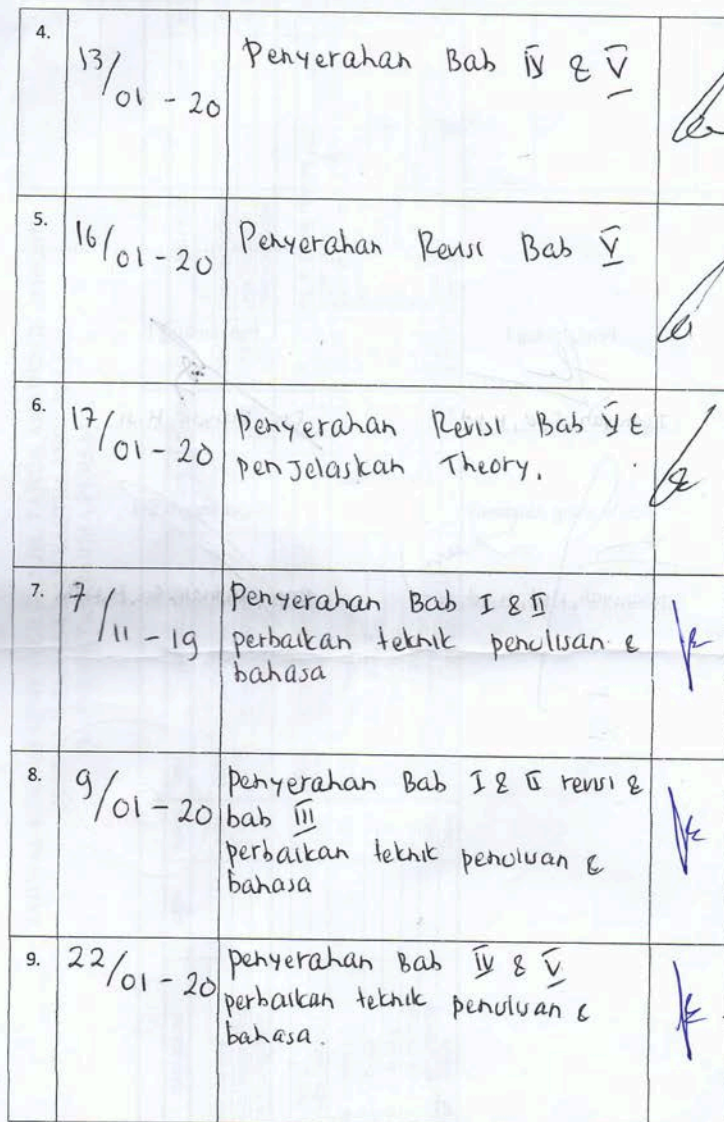 4. 13/01 - 20 Penyerahan Bab IV & V
5. 16/01 - 20 Penyerahan Revisi Bab V
6. 17/01 - 20 Penyerahan Revisi Bab V &
penjelaskan Theory.
7. 7/11 - 19 Penyerahan Bab I & II
perbaikan teknik penulisan &
bahasa
8. 9/01 - 20 penyerahan Bab I & II revisi &
bab III
perbaikan teknik penulisan &
bahasa
9. 22/01 - 20 penyerahan Bab IV & V
perbaikan teknik penulisan &
bahasa.